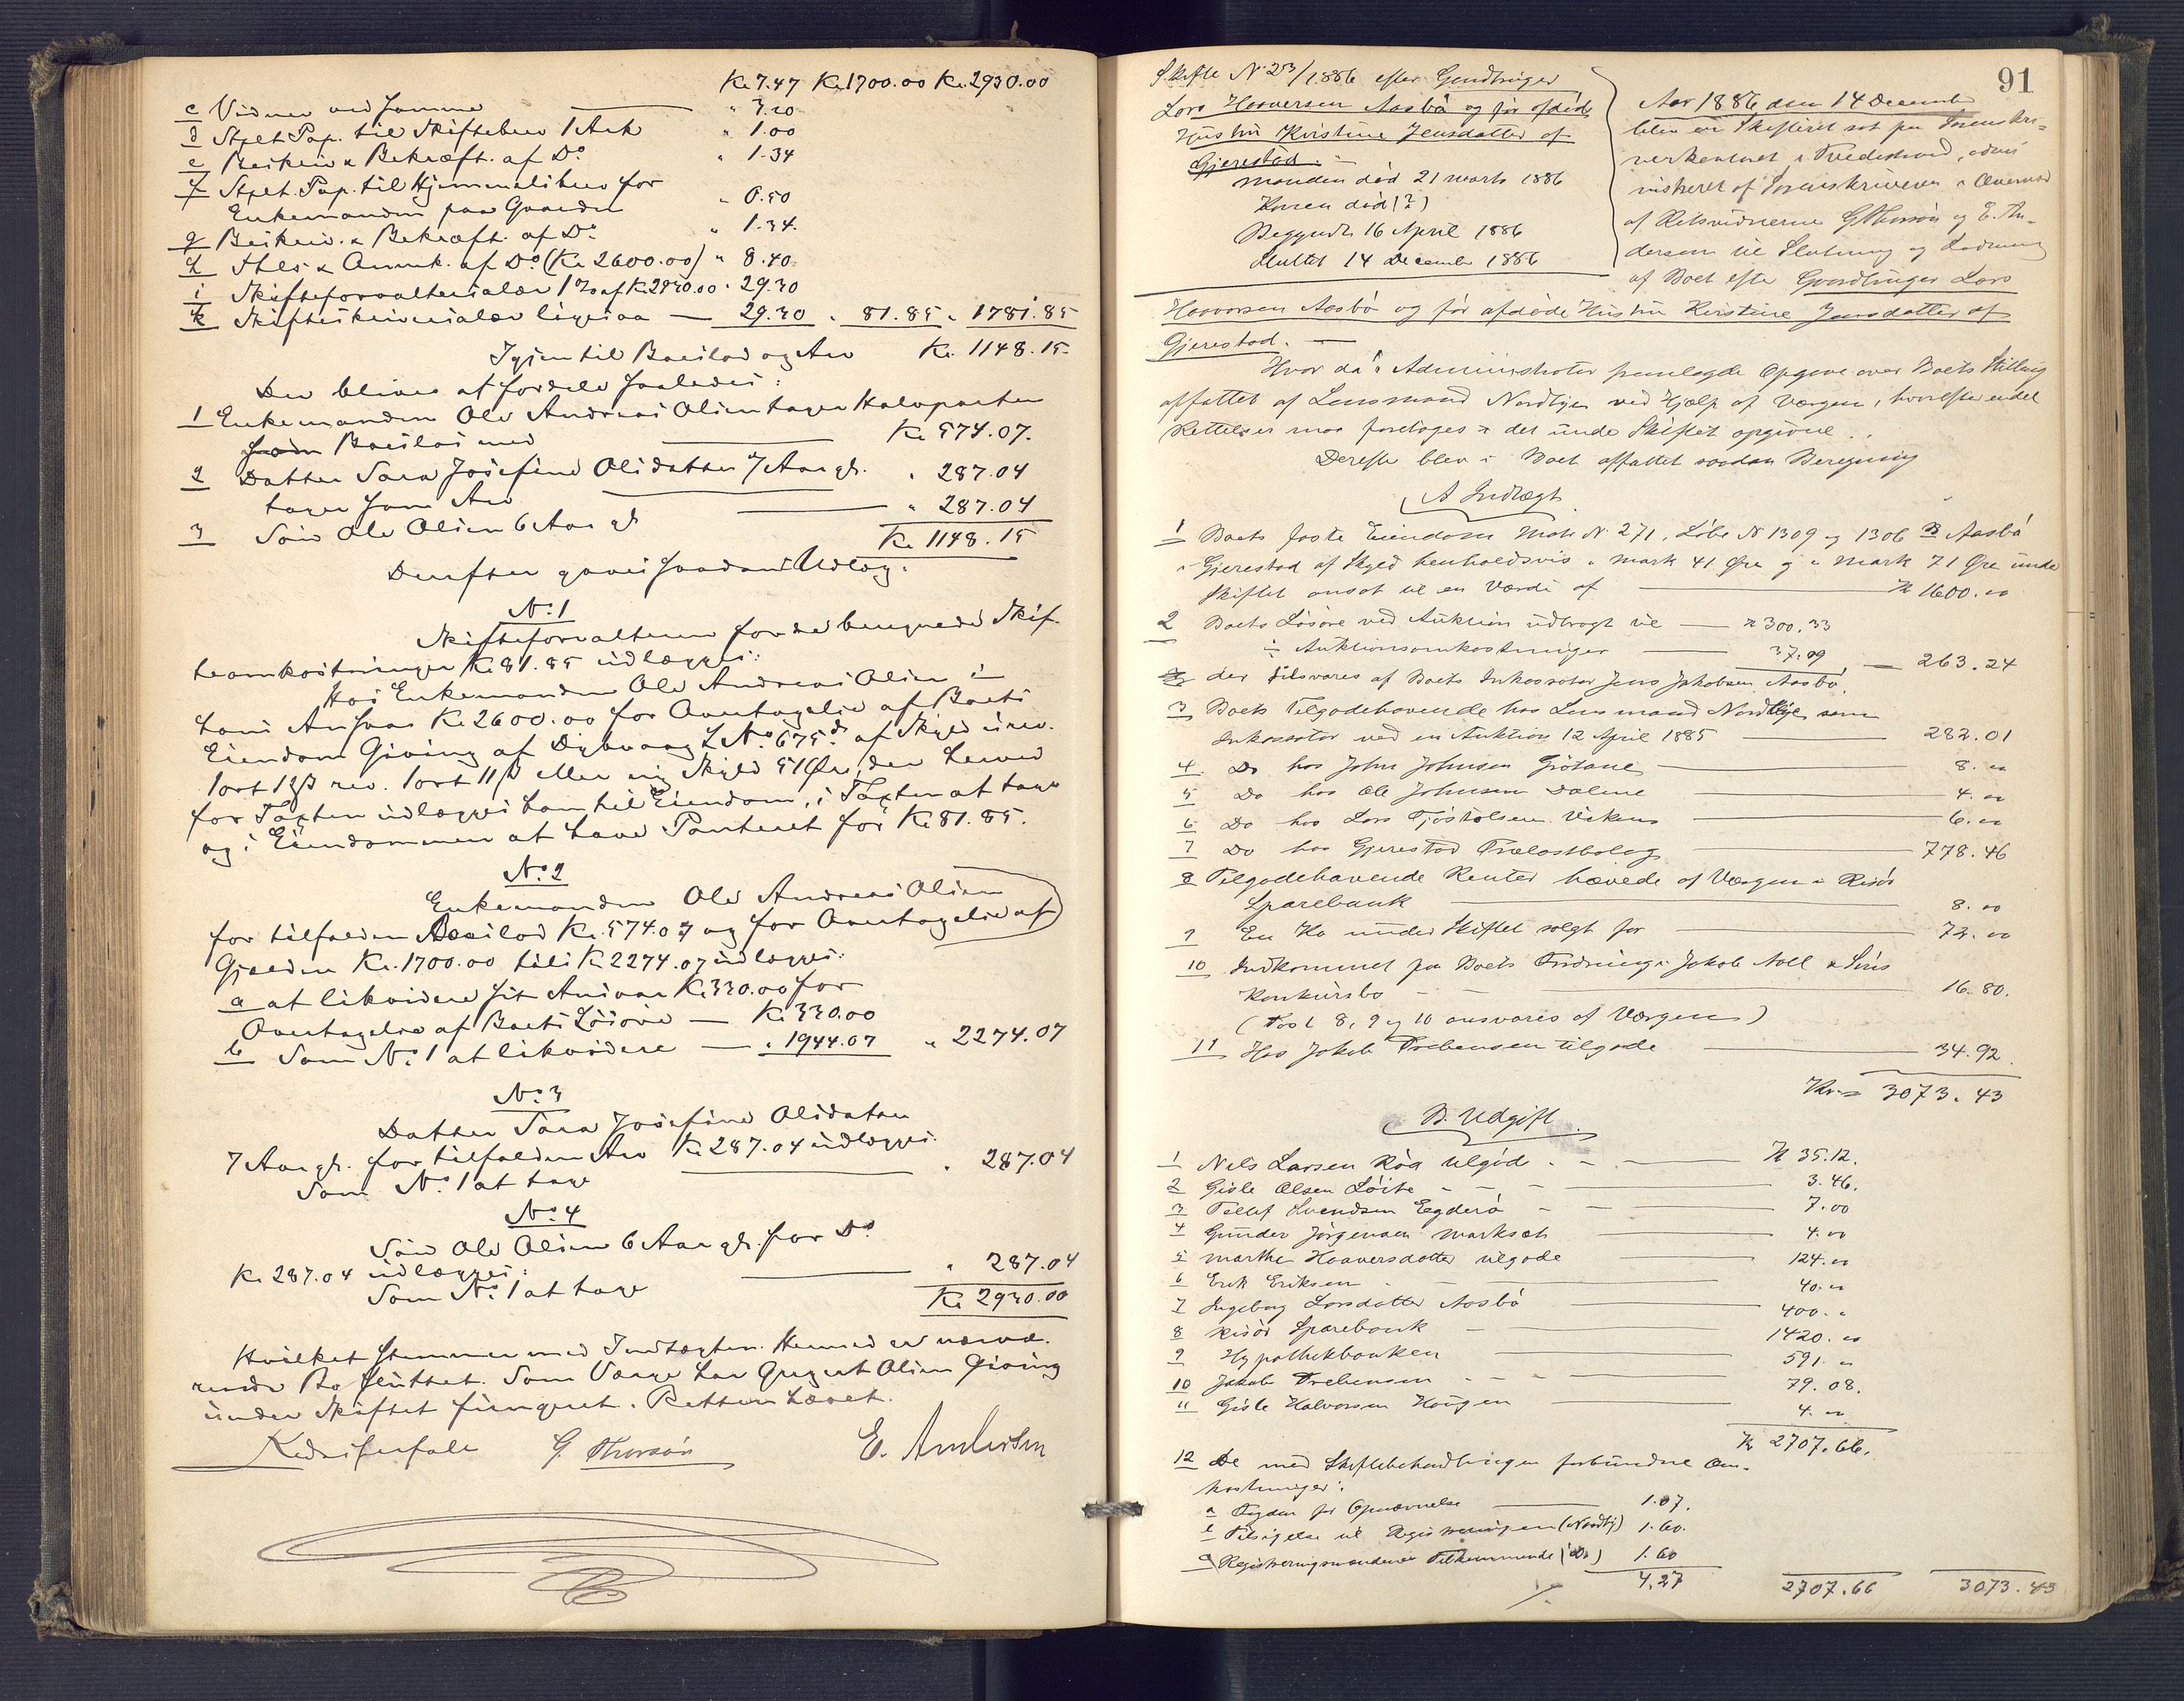 Kr. 7.47 Kr. 1700.00 Kr. 2930.00
c Vidner ved samme " 3.20
d Stplt. Pap. til Skiftebrev 1 Ark " 1.00
e Beskriv. & Bekræft. af Do " 1.34
f Stplt. Pap. til Hjemmelsbrev for
Enkemanden paa Gaarden " 0.50
g Beskriv. & Bekræft. af Do " 1.34.
h Thls. & Annmk. af Do (Kr. 2600.00) " 8.40.
i Skifteforvaltersalær 1 % af Kr. 2930.00 " 29.30
k Skifteskriversalær ligesaa — 29.30 " 81.85 " 1781.85
Igjen til Boeslod og Arv Kr. 1148.15.
Der bliver at fordele saaledes:
1 Enkemanden Ole Andreas Olsen tager Halvparten
som Boeslod med Kr. 574.07.
2 Datter Sara Josefine Olsdatter 7 Aar gl.
tager som Arv " 287.04
3 Søn Ole Olsen 6 Aar gl " 287.04
Kr. 1148.15
Derefter gaves saadant Udlæg:
No. 1
Skifteforvalteren for de beregnede Skif-
teomkostninger Kr. 81.85 udlægges:
Hos Enkemanden Ole Andreas Olsen i
hans Ansvar Kr. 2600.00 for Overtagelse af Boets
Eiendom Giving af Dybvaag L. No. 675 d. af Skyld urev.
1 ort 12 ß rev. 1 ort 11 ß eller ny Skyld 51 Øre, der herved
for Taxten udlægges ham til Eiendom, i Taxten at tage
og i Eiendommen at have Panteret for Kr. 81.85.
No. 2
Enkemanden Ole Andreas Olsen
for tilfalden Boeslod Kr. 574.07 og for Overtagelse af
Gjælden Kr. 1700.00 tils. Kr. 2274.07 udlægges:
a at likvidere sit Ansvar Kr. 330.00 for
Overtagelse af Boets Løsøre — Kr. 330.00
b Som No. 1 at likvidere — " 1944.07 " 2274.07
No. 3
Datter Sara Josefine Olsdatter
7 Aar gl. for tilfalden Arv Kr. 287.04 udlægges:
Som No. 1 at tage " 287.04
No. 4
Søn Ole Olsen 6 Aar gl. for Do
Kr. 287.04 udlægges:
Som No. 1 at tage " 287.04
Kr. 2930.00
Hvilket stemmer med Indtægten. Hermed er nærvæ-
rende Bo sluttet. Som Værge har Gregert Olsen Giving
under Skiftet fungeret. Retten hævet.
G. Thorsøn E. Andersen
91
Skifte No 23/1886 efter Gaardbruger
Lars Haaversen Aasbø og før afdøde
Hustru Kirstine Jensdatter af
Gjerestad. —
Manden død 21 Marts 1886
Konen død (?)
Begyndt 16 April 1886
Sluttet 14 December 1886
Aar 1886 den 14 December
blev en Skifteret sat paa Sorenskri-
verkontoret i Tvedestrand, admi-
nistreret af Sorenskriveren i Overvær
af Retsvidnerne G Thorsøn og E. An-
dersen til Slutning og Lodning
af Boet efter Gaardbruger Lars
Haaversen Aasbø og før afdøde Hustru Kirstine Jensdatter af
Gjerestad. —
Hvor da Administrator fremlagde Opgave over Boets Stilling
affattet af Lensmand Nordbye ved Hjælp af Værgen, hvorefter endel
Rettelser maa foretages i det under Skiftet opgivne.
Derefter blev i Boet affattet saadan Beregning
A Indtægt.
1 Boets faste Eiendom Matr. No. 271, Løbe No 1309 og 1306 B Aasbø
i Gjerestad af Skyld henholdsvis " Mark 41 Øre og " Mark 71 Øre under
Skiftet ansat til en Værdi af Kr 1600.00
2 Boets Løsøre ved Auktion udbragt til — Kr 300.33
÷ Auktionsomkostninger — 37.09 — 263.24
der tilsvares af Boets Inkassator Jens Jakobsen Aasbø.
3 Boets Tilgodehavende hos Lensmand Nordbye som
Inkassator ved en Auktion 12 April 1885 — 282.01
4 Do hos John Johnsen — 8.00
5 Do hos Ole Johnsen Dalene — 4.00
6 Do hos Lars Tjøstolsen Vikens — 6.00
7 Do hos Gjerestad Trælastbolag — 778.46
8 Tilgodehavende Renter hævede af Værgen i Risør
Sparebank — 8.00
9 En Ko under Skiftet solgt for — 72.00
10 Indkommet paa Boets Fordring i Jakob Noll & Søns
Konkursbo — 16.80.
(Post 8, 9 og 10 ansvares af Værgen)
11 Hos Jakob Trebensen tilgode — 34.92.
Kr. 3073.43
B. Udgift.
1 Nils Larsen Røa tilgode — Kr 35.12.
2 Gisle Olsen Løite — 3.46.
3 Tellef Svendsen Egderø — 7.00
4 Gunder Jørgensen — 4.00
5 Marthe Haaversdatter tilgode — 124.00
6 Erik Eriksen — 40.00
7 Ingeborg Larsdatter Aasbø — 400.00
8 Risør Sparebank — 1420.00
9 Hypothekbanken — 591.00
10 Jakob Trebensen — 79.08.
11 Gisle Halvorsen Haugen — 4.00
Kr 2707.66.
12 De med Skiftebehandlingen forbundne Om-
kostninger:
a Fogden for Opnævnelse — 1.07.
b Tilsigelse til Registreringen (Nordby) 1.60.
c Registreringsmændenes Tilkommende (Do) 1.60
4.27 2707.66 3073.43